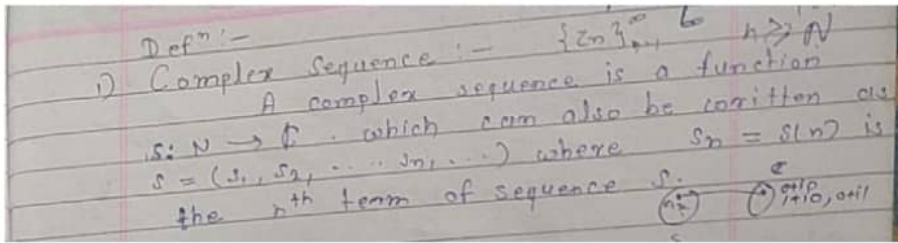 Defⁿ :-
1) Complex Sequence :- {Zn}∞ n≥N
A complex sequence is a function
S: N → ₵. which can also be coritten as
S = (S₁, S₂, ..... Sn, ...) where Sn = S(n) is
the nᵗʰ term of sequence S.
0+i0
1+i0, 0+i1